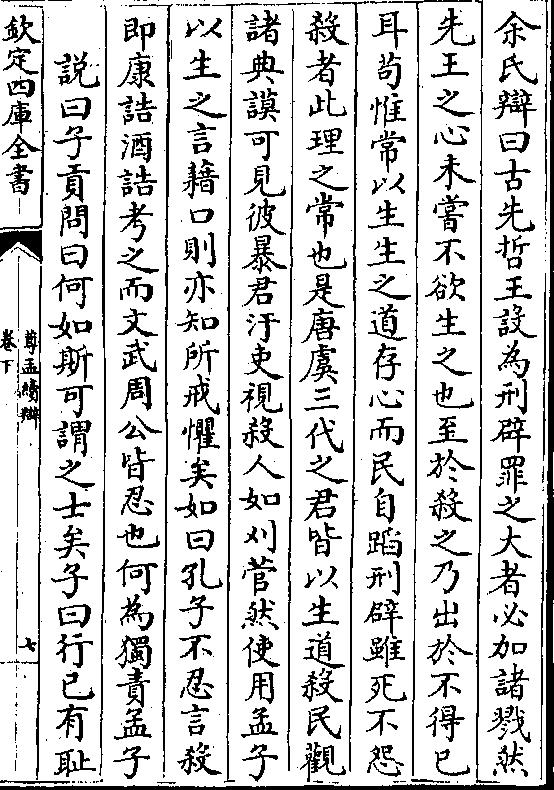 余氏辯曰古先哲王設為刑辟罪之大者必加諸戮然
先王之心未嘗不欲生之也至於殺之乃出於不得已
耳苟惟常以生生之道存心而民自蹈刑辟雖死不怨
殺者此理之常也是唐虞三代之君皆以生道殺民觀
諸典謨可見彼暴君汙吏視殺人如刈菅然使用孟子
以生之言藉口則亦知所戒懼矣如曰孔子不忍言殺
即康誥酒誥考之而文武周公皆忍也何為獨責孟子
説曰子貢問曰何如斯可謂之士矣子曰行已有恥
欽定四庫全書
尊孟續辯
卷下
七